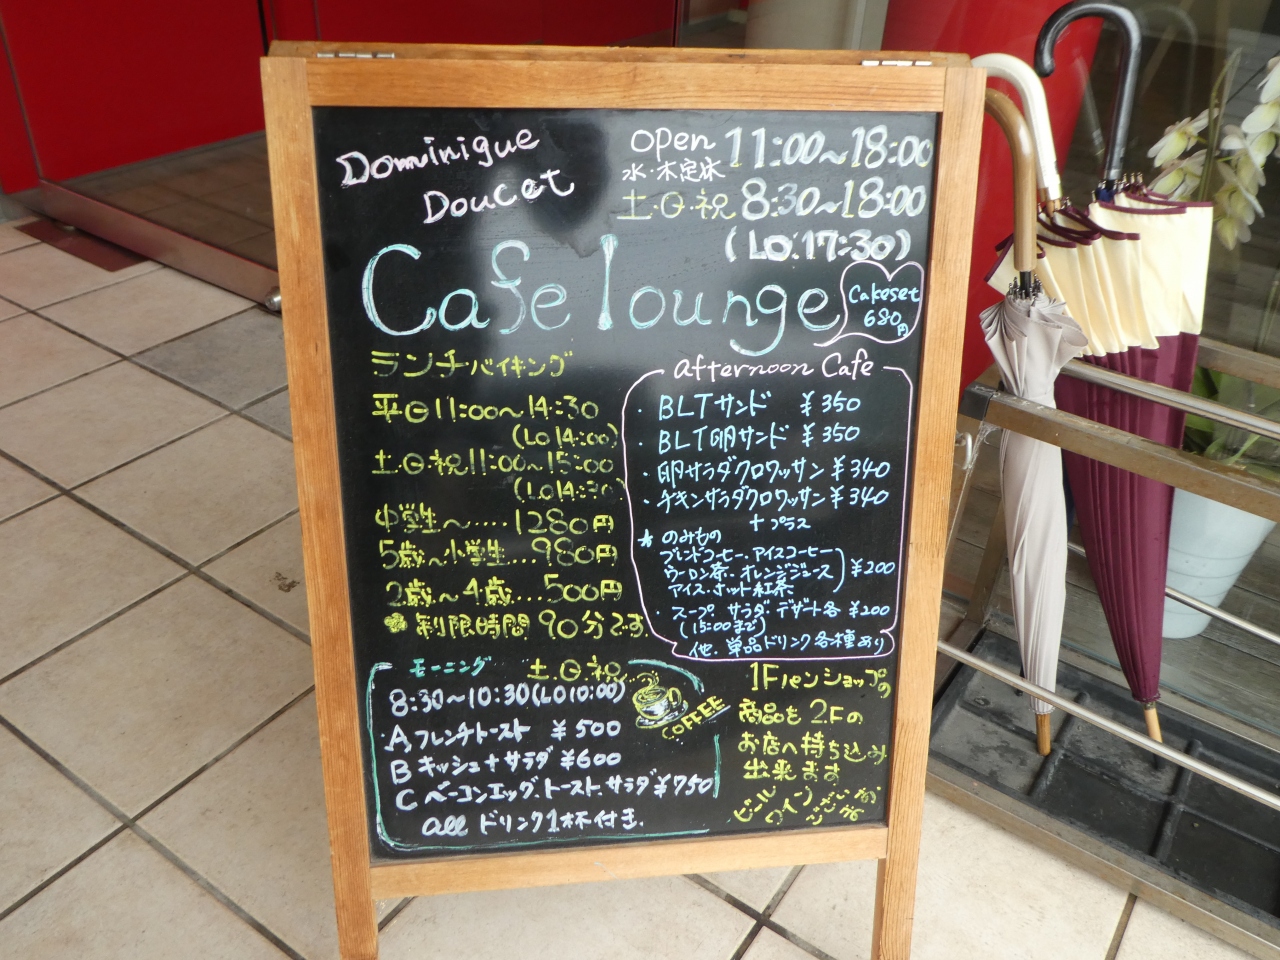 Dominique
Doucet
open 11:00~18:00
水・木定休
土・日・祝 8:30~18:00
(LO.17:30)
Cafe lounge
Cakeset
680円
ランチバイキング
平日11:00~14:30
(LO14:00)
土・日・祝11:00~15:00
(LO14:30)
中学生~....1280円
5歳~小学生...980円
2歳~4歳....500円
制限時間 90分です
afternoon Cafe
・BLTサンド ¥350
・BLT卵サンド ¥350
・卵サラダクロワッサン ¥340
・チキンサラダクロワッサン ¥340
+プラス
★のみもの
ブレンドコーヒー、アイスコーヒー
ウーロン茶、オレンジジュース ¥200
アイス・ホット紅茶
・スープ サラダ デザート各 ¥200
(15:00まで)
他、単品ドリンク各種あり
モーニング 土・日・祝
8:30~10:30(LO10:00)
A フレンチトースト ¥500
B キッシュ+サラダ ¥600
C ベーコンエッグ、トースト、サラダ ¥750
all ドリンク1杯付き.
COFFEE
1Fパンショップの
商品を2Fの
お店へ持ち込み
出来ます
ビール
ワイン